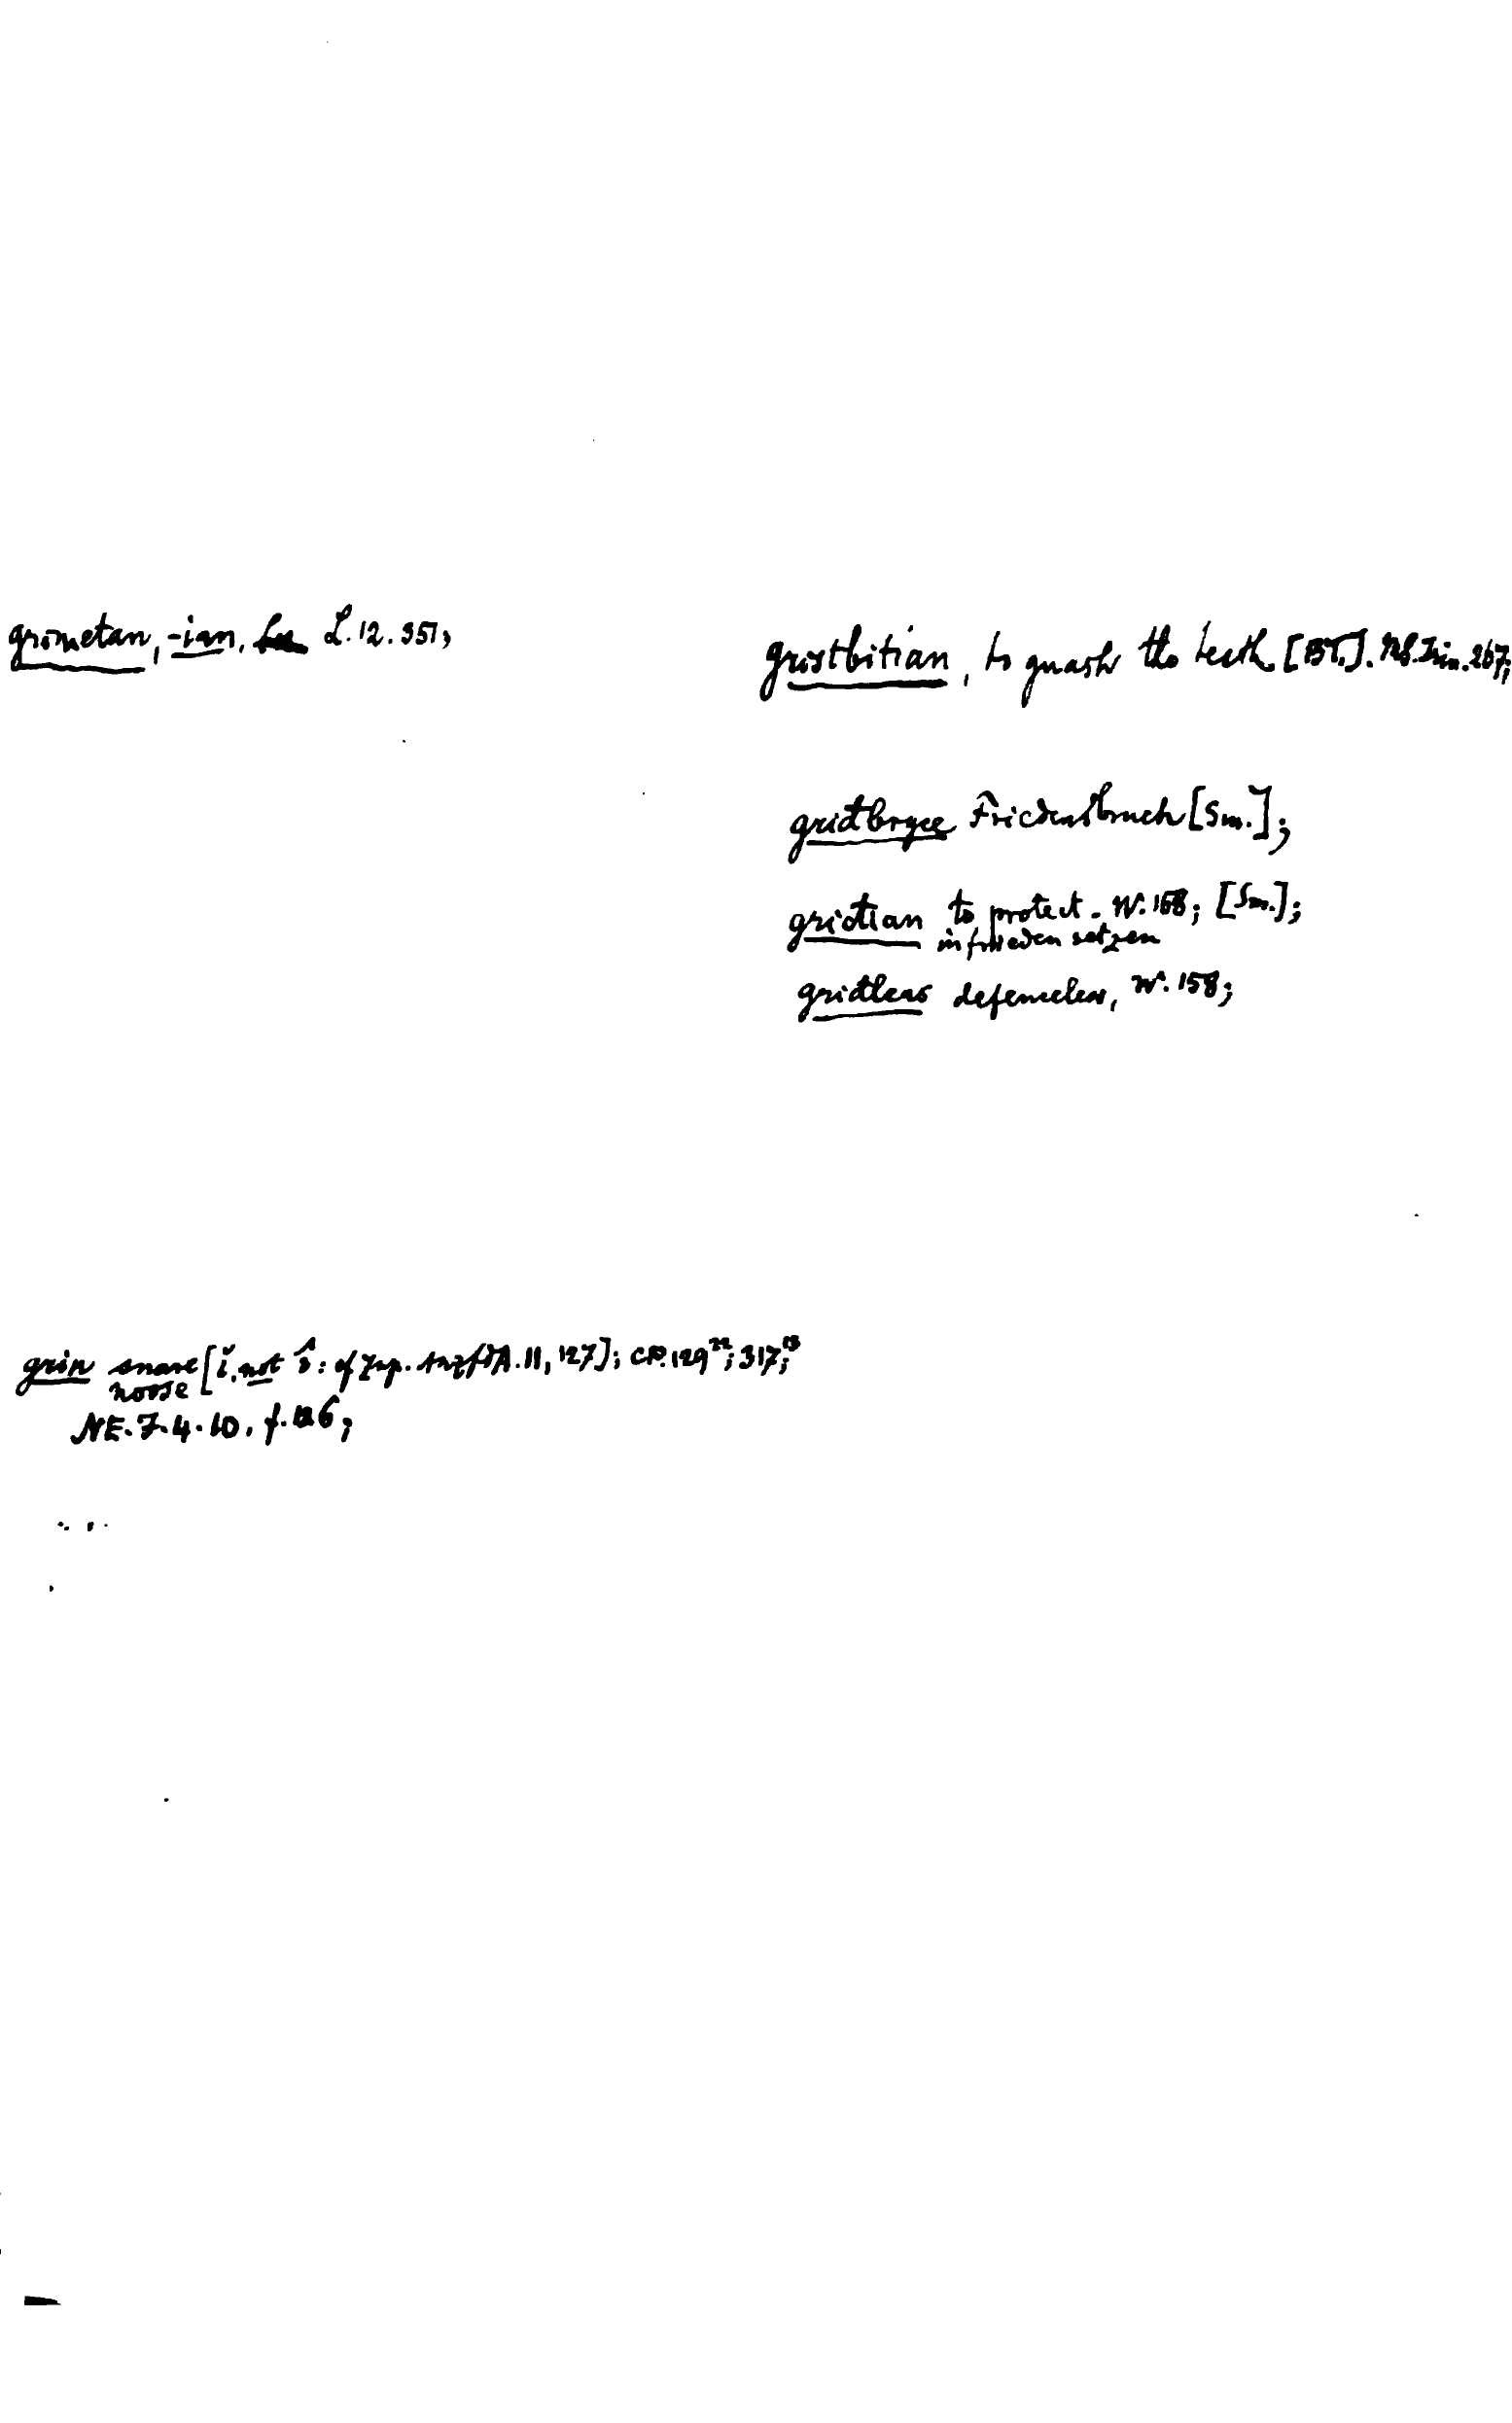 grimetan, -ian, L. 12. 351;
gristbitian, to gnash the teeth [BT.]. 267;
gridbryce Friedensbruch [Sm.];
gridian to protect. W. 168; [Sm.];
in frieden setzen
gridleas defenceless, W. 158;
grin snare [ĭ, not î: cf Zup. AnzfdA. 11, 127]; CP. 129²²; 317;¹³
noose
NE. 7.4.10. f.